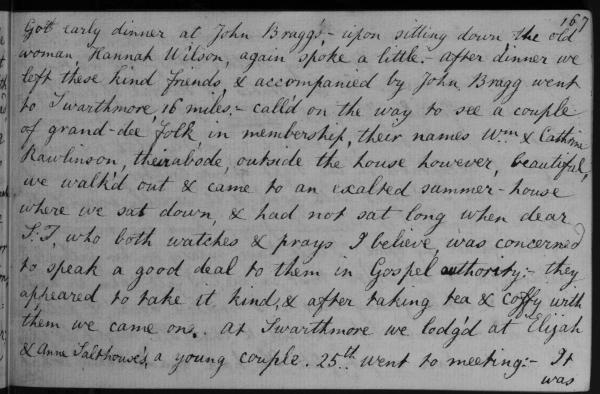 167
Got early dinner at John Braggs,- upon sitting down, the old
woman, Hannah Wilson, again spoke a little.- after dinner we
left these kind friends, & accompanied by John Bragg went
to Swarthmore, 16 miles.- call'd on the way to see a couple
of grand-dee folk in membership, their names Wm. & Cathrine
Rawlinson, their abode, outside the house however, beautiful,
we walk'd out & came to an exalted summer-house
where we sat down, & had not sat long when dear
S:T, who both watches & prays I believe, was concerned
to speak a good deal to them in Gospel authority:- they
appeared to take it kind, & after taking tea & coffy with
them we came on. At Swarthmore we lodg'd at Elijah
& Anne Salthouse's, a young couple. 25th. went to meeting:- It
was